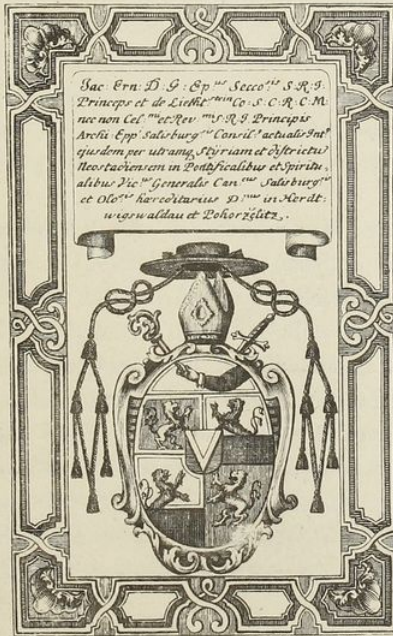 Jac: Ern: D: G: Ep:us Secco:is S: R: J:
Princeps et de Liecht:stein Co: S: C: R: C: M:
nec non Cel:mi et Rev:mi S: R: J: Principis
Archi Epp' Salisburg:sis Consil:s actualis Int:s
ejusdem per utramq, Styriam et districtu
Neostadiensem in Pontificalibus et Spiritu,
alibus Vic:us Generalis Can:cus Salisburg:sis
et Olo:us hæreditarius D:nus in Herdt:
wigswaldau et Pohorzelitz,.